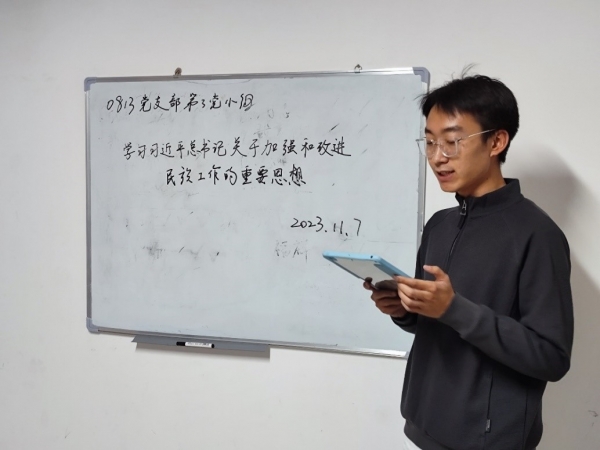 0813党支部第3党小组
学习习近平总书记关于加强和改进
民族工作的重要思想
2023.11.7